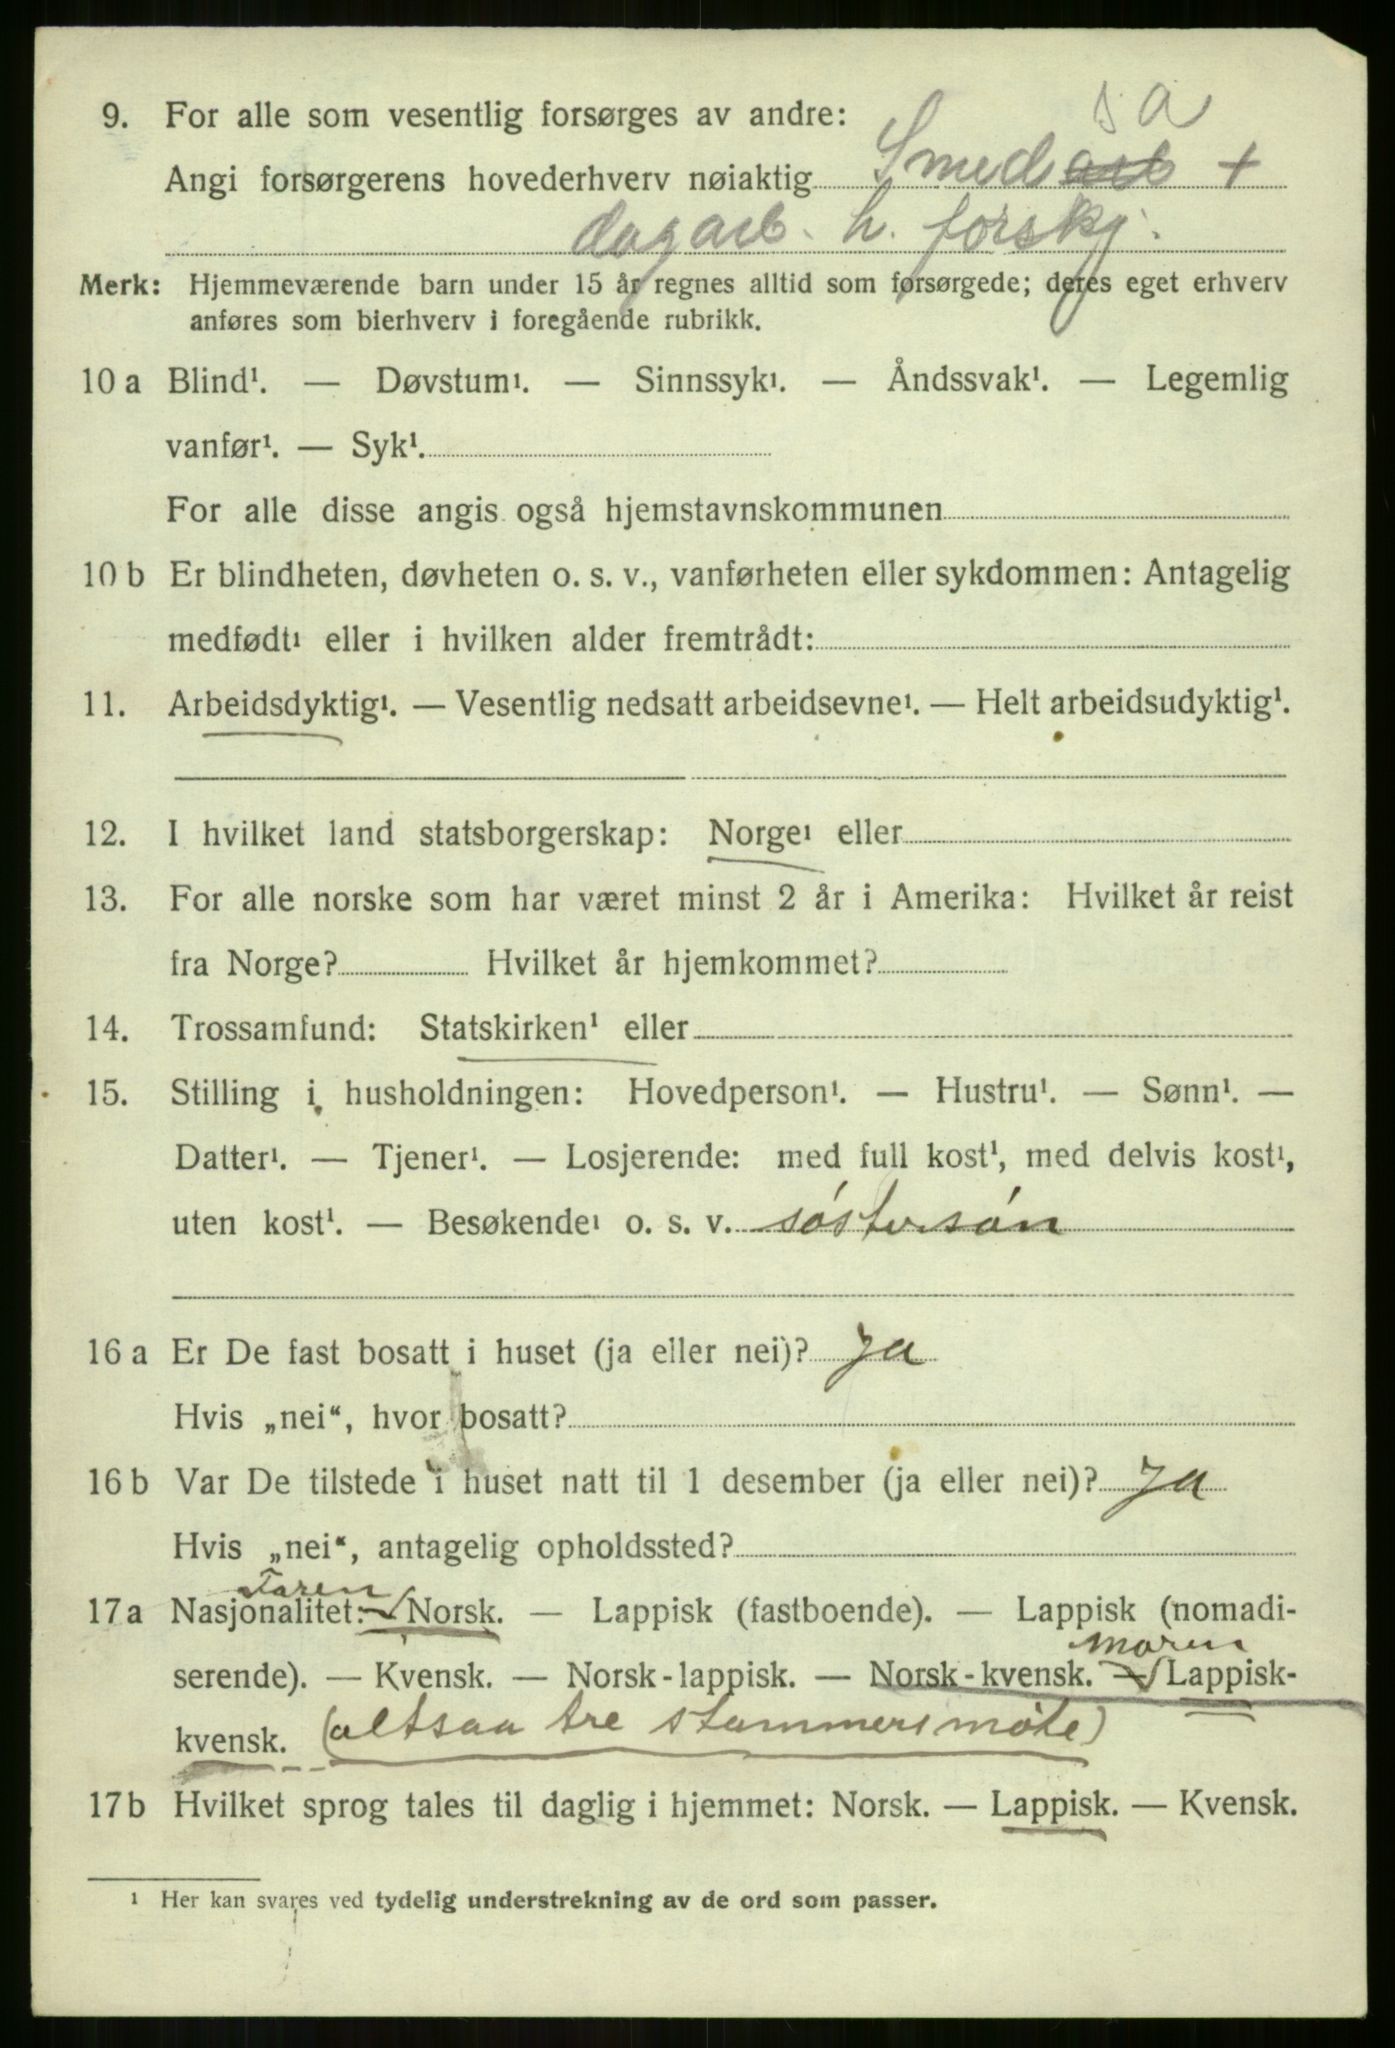 9. For alle som vesentlig forsørges av andre: s a
Angi forsørgerens hovederhverv nøiaktig Smed arb +
dagarb. h. forskj.
Merk: Hjemmeværende barn under 15 år regnes alltid som forsørgede; deres eget erhverv
anføres som bierhverv i foregående rubrikk.
10 a Blind¹. — Døvstum¹. — Sinnssyk¹. — Åndssvak¹. — Legemlig
vanfør¹. — Syk¹.
For alle disse angis også hjemstavnskommunen
10 b Er blindheten, døvheten o. s. v., vanførheten eller sykdommen: Antagelig
medfødt¹ eller i hvilken alder fremtrådt:
11. Arbeidsdyktig¹. — Vesentlig nedsatt arbeidsevne¹. — Helt arbeidsudyktig¹.
12. I hvilket land statsborgerskap: Norge¹ eller
13. For alle norske som har været minst 2 år i Amerika: Hvilket år reist
fra Norge? Hvilket år hjemkommet?
14. Trossamfund: Statskirken¹ eller
15. Stilling i husholdningen: Hovedperson¹. — Hustru¹. — Sønn¹. —
Datter¹. — Tjener¹. — Losjerende: med full kost¹, med delvis kost¹,
uten kost¹. — Besøkende¹ o. s. v. søstersøn
16 a Er De fast bosatt i huset (ja eller nei)? Ja
Hvis „nei“, hvor bosatt?
16 b Var De tilstede i huset natt til 1 desember (ja eller nei)? Ja
Hvis „nei“, antagelig opholdssted?
Faren
17 a Nasjonalitet: Norsk. — Lappisk (fastboende). — Lappisk (nomadi-
moren
serende). — Kvensk. — Norsk-lappisk. — Norsk-kvensk. — Lappisk-
kvensk. (altsaa tre stammers møte)
17 b Hvilket sprog tales til daglig i hjemmet: Norsk. — Lappisk. — Kvensk.
¹ Her kan svares ved tydelig understrekning av de ord som passer.